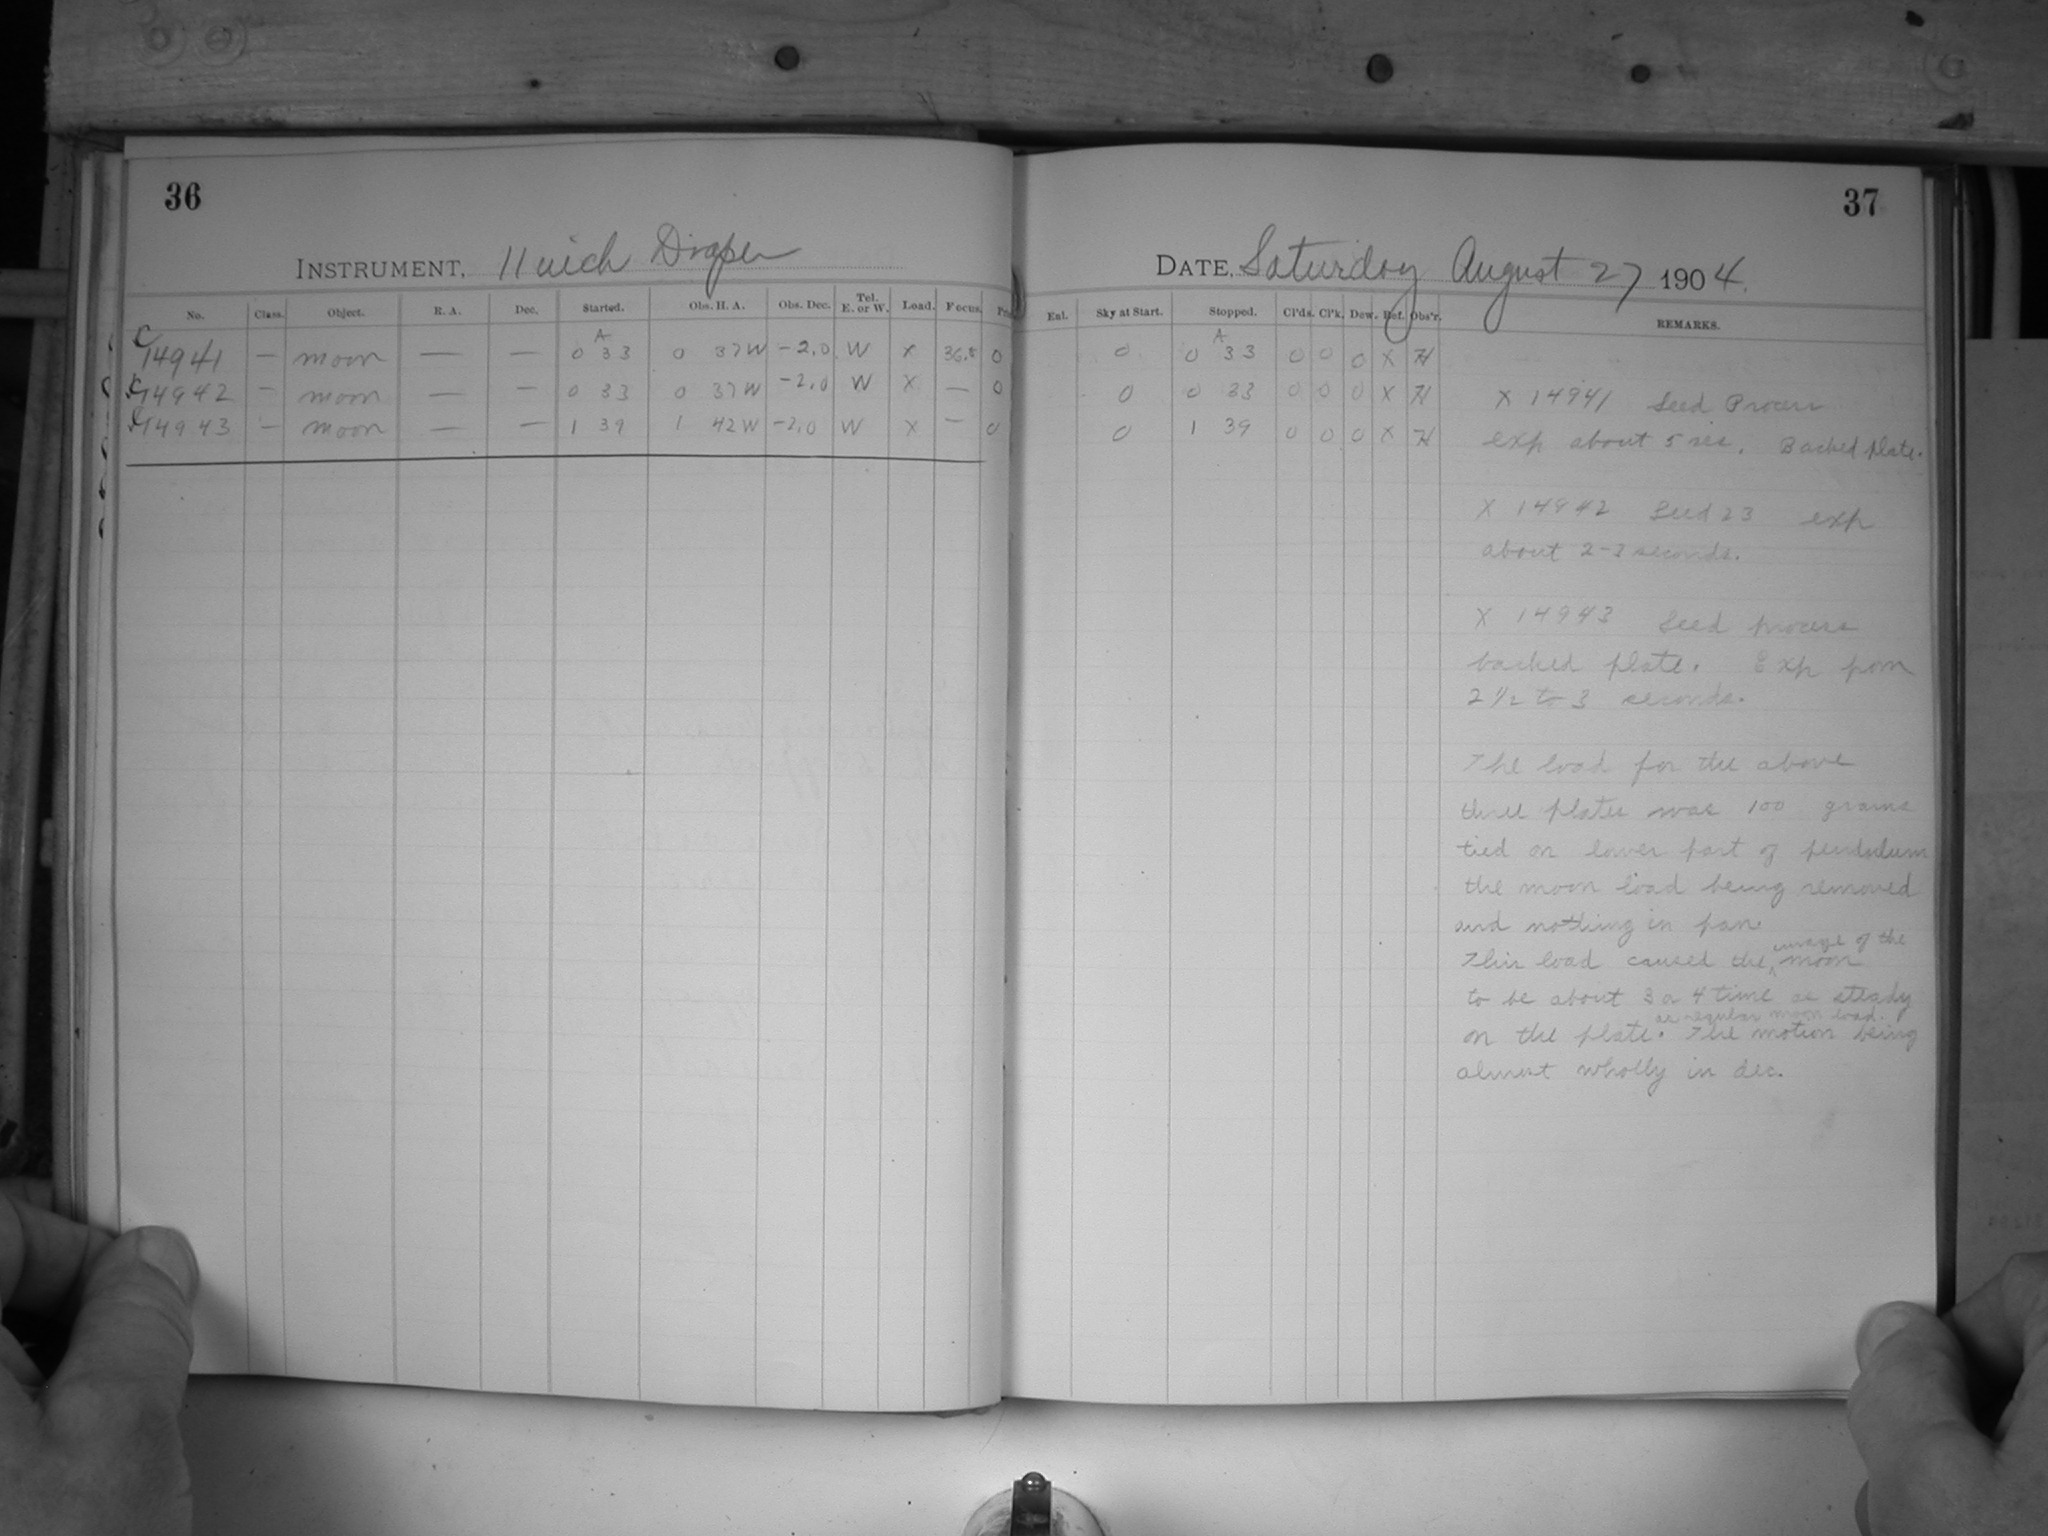 36
INSTRUMENT, 11 inch Draper
No. Class. Object. R. A. Dec. Started. Obs. H. A. Obs. Dec. Tel. E. or W. Load. Focus.
A
C 14941 — moon — — 0 33 0 37 W -2.0 W X 36.8 0
C 14942 — moon — — 0 33 0 37 W -2.0 W X — 0
C 14943 — moon — — 1 39 1 42 W -2.0 W X — 0
37
DATE, Saturday August 27 1904.
Sky at Start. Stopped. Cl'ds. Cl'k. Dew. Ref. Obs'r. REMARKS.
A
0 0 33 0 0 0 X H
0 0 33 0 0 0 X H
0 1 39 0 0 0 X H
X 14941 Seed Process
exp about 5 sec. Backed plate.
X 14942 Seed 23 exp
about 2-3 seconds.
X 14943 Seed process
backed plate. Exp from
2 1/2 to 3 seconds.
The load for the above
three plates was 100 grams
tied on lower part of pendulum
the moon load being removed
and nothing in pan.
This load caused the image of the moon
to be about 3 or 4 time as steady
on the plate as regular moon load. The motion being
almost wholly in dec.